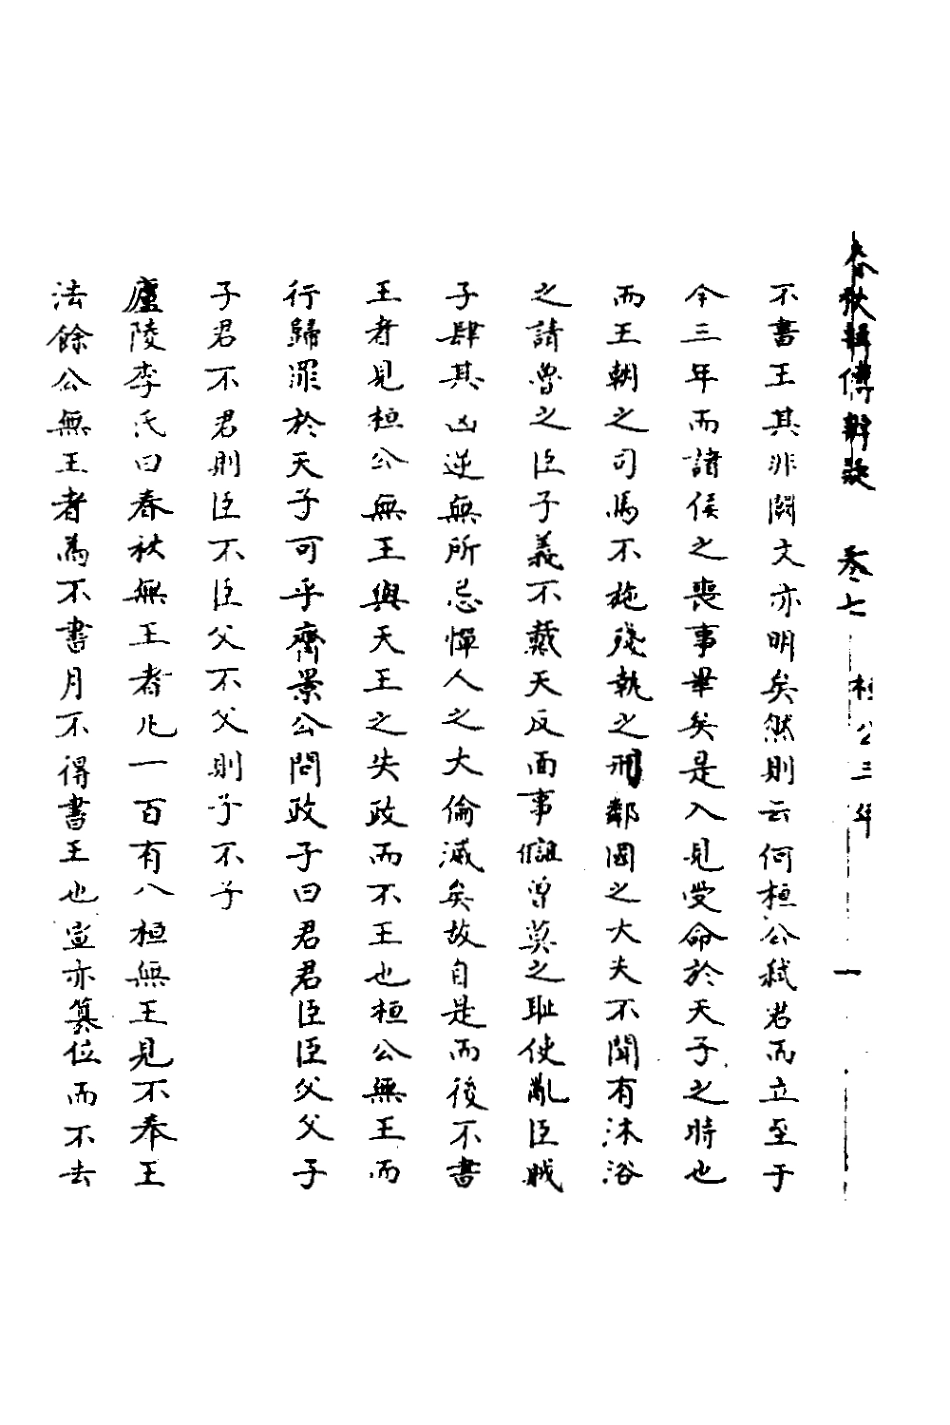 春秋輯傳辨疑 卷七 桓公三年 一
不書王其非闕文亦明矣然則云何桓公弒君而立至于
今三年而諸侯之喪事畢矣是入見受命於天子之時也
而王朝之司馬不施殘執之刑鄰國之大夫不聞有沐浴
之請魯之臣子義不戴天反面事讎曾莫之恥使亂臣賊
子肆其凶逆無所忌憚人之大倫滅矣故自是而後不書
王者見桓公無王與天王之失政而不王也桓公無王而
行歸罪於天子可乎齊景公問政子曰君君臣臣父父子
子君不君則臣不臣父不父則子不子
廬陵李氏曰春秋無王者凡一百有八桓無王見不奉王
法餘公無王者為不書月不得書王也宣亦篡位而不去